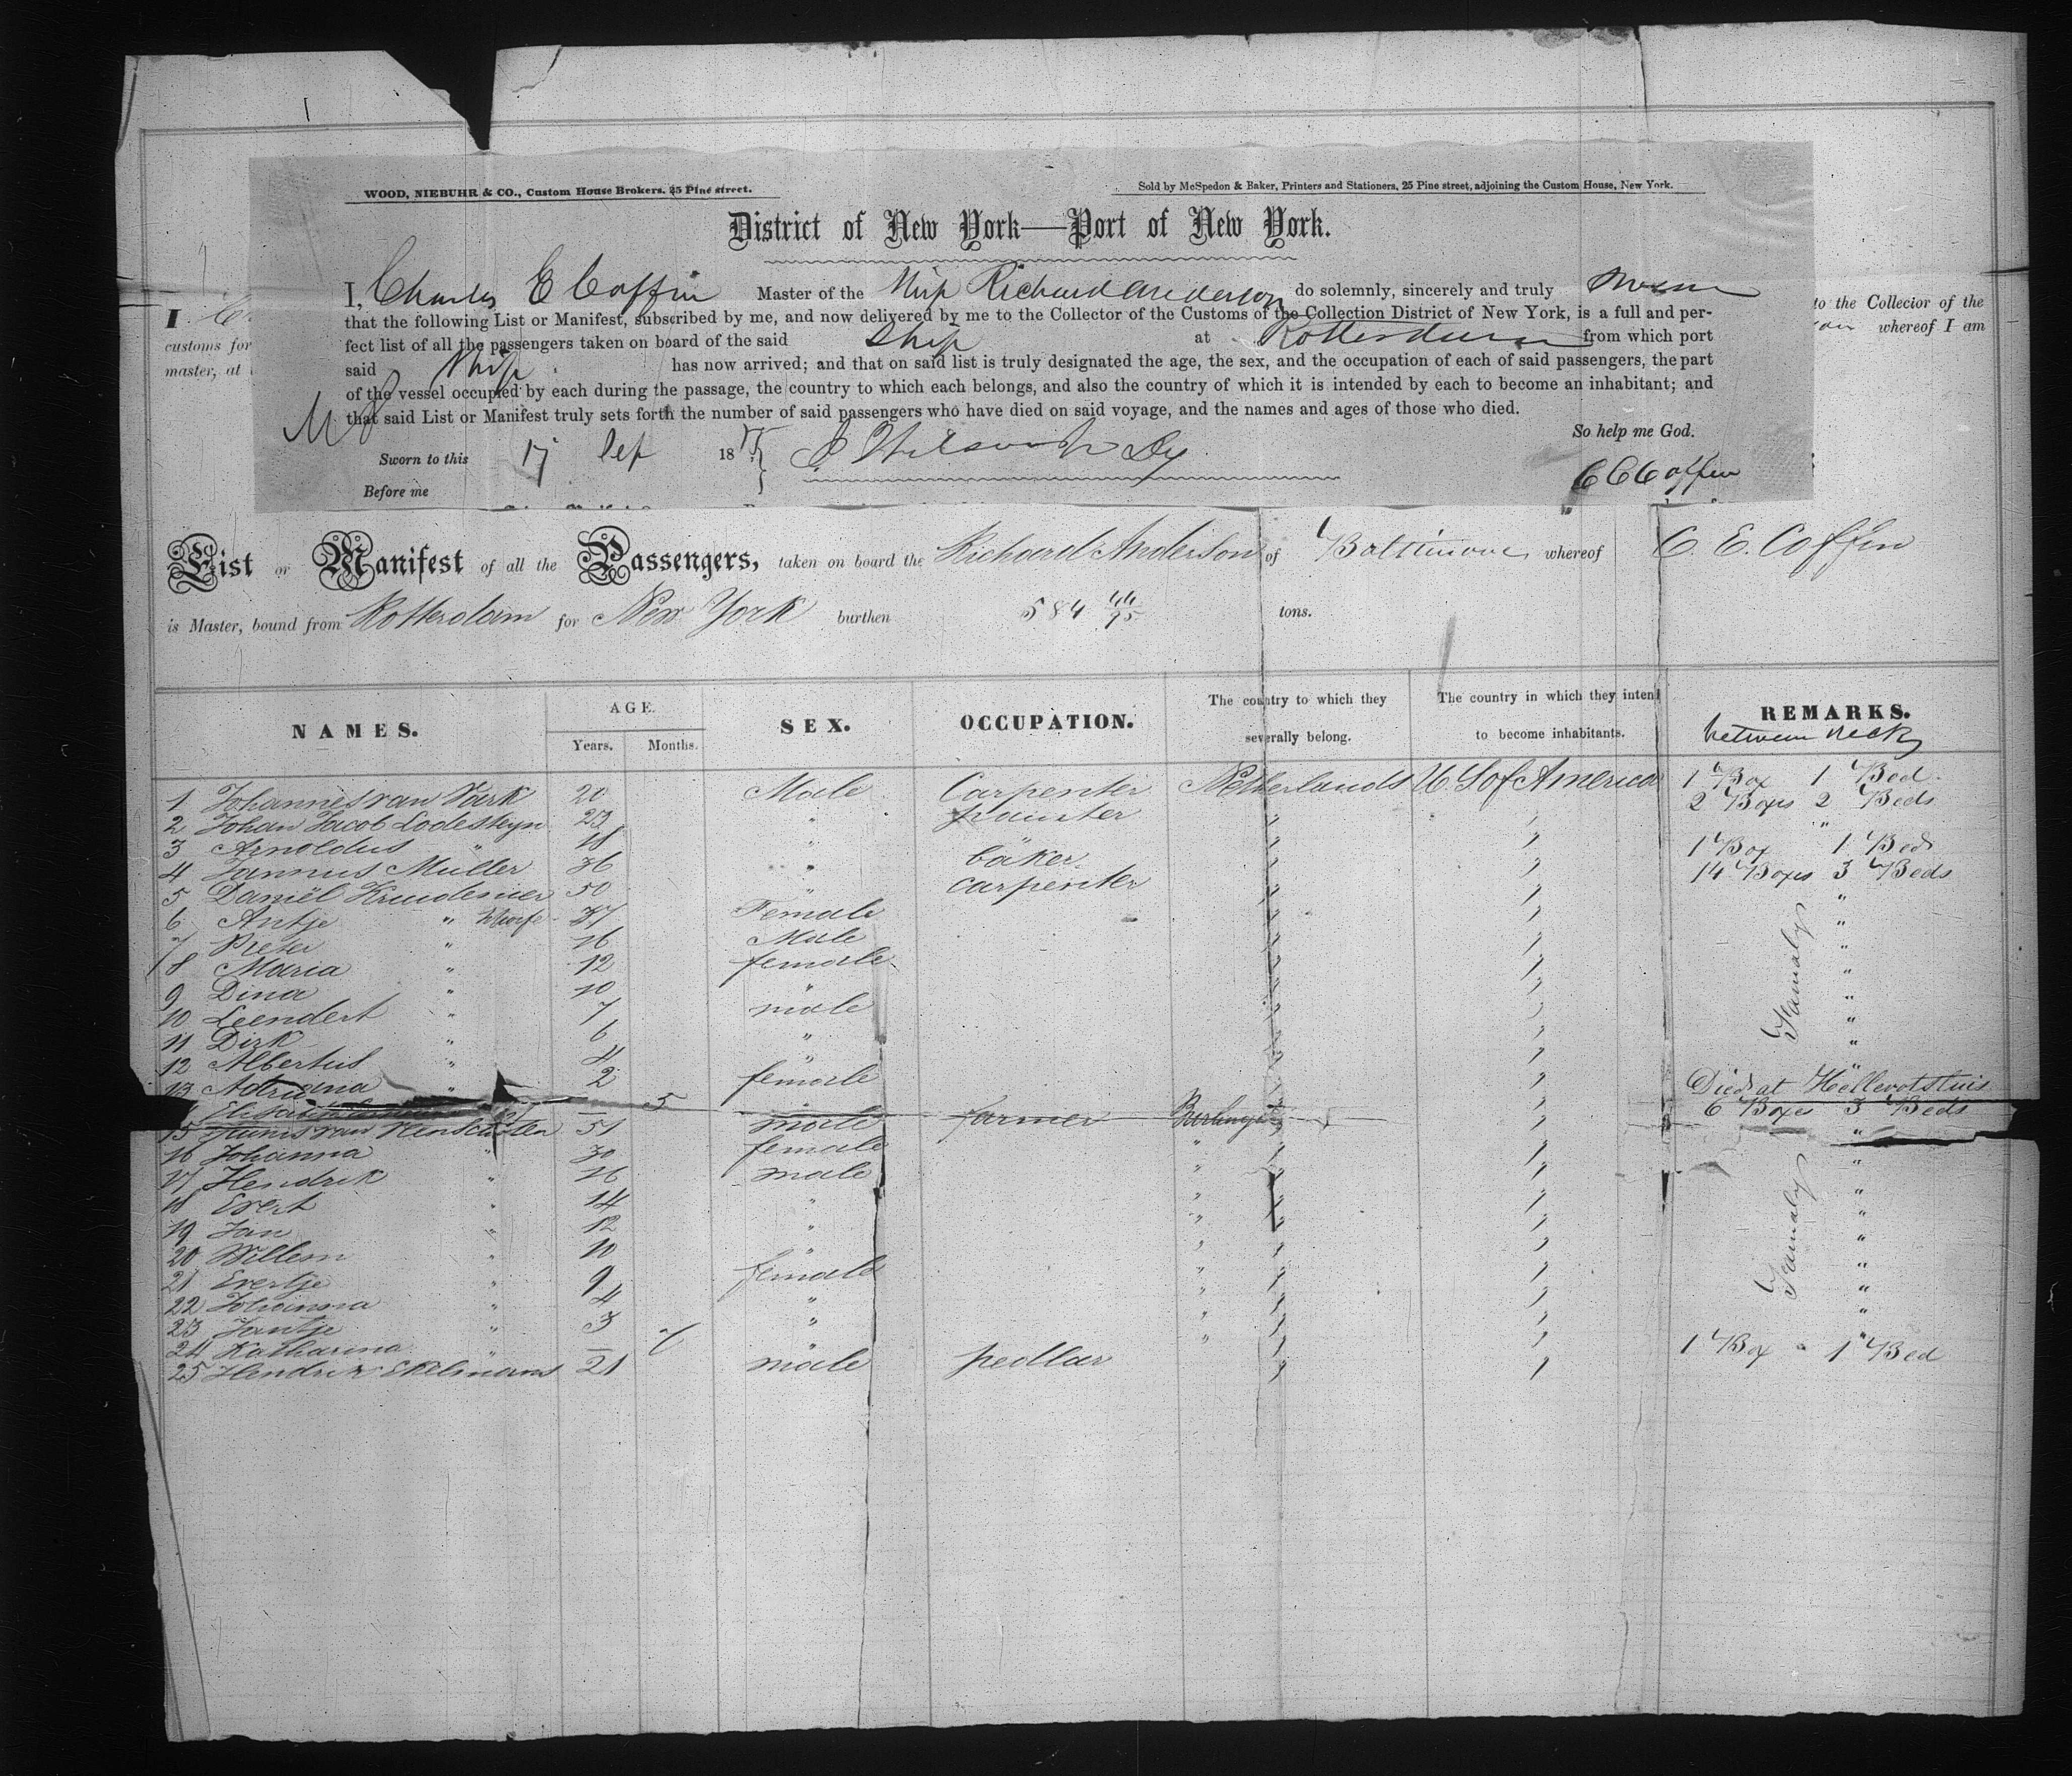 WOOD, NIEBUHR & CO., Custom House Brokers. 25 Pine street.
Sold by McSpedon & Baker, Printers and Stationers, 25 Pine street, adjoining the Custom House, New York.
District of New York—Port of New York.
I, Charles E Coffin Master of the Ship Richard Anderson do solemnly, sincerely and truly swear
that the following List or Manifest, subscribed by me, and now delivered by me to the Collector of the Customs of the Collection District of New York, is a full and per-
fect list of all the passengers taken on board of the said Ship at Rotterdam from which port
said Ship has now arrived; and that on said list is truly designated the age, the sex, and the occupation of each of said passengers, the part
of the vessel occupied by each during the passage, the country to which each belongs, and also the country of which it is intended by each to become an inhabitant; and
that said List or Manifest truly sets forth the number of said passengers who have died on said voyage, and the names and ages of those who died.
So help me God.
Sworn to this 17 Sep 18
Before me
C E Coffin
I
customs for
master, at
to the Collecior of the
whereof I am
List or Manifest of all the Passengers, taken on board the Richard Anderson of Baltimore whereof C. E. Coffin
is Master, bound from Rotterdam for New York burthen 584 44/95 tons.
NAMES. AGE. SEX. OCCUPATION. The country to which they severally belong. The country in which they intend to become inhabitants. REMARKS.
Years. Months. between decks
1 Johannes van Vark 20 Male Carpenter Netherlands U.S of America 1 Box 1 Bed
2 Johan Jacob Lodesteyn 23 " painter " " 2 Boxes 2 Beds
3 Arnoldus " 18 " " " "
4 Jannus Müller 36 " bäker " " 1 Box 1 Bed
5 Daniël Kruidenier 50 " carpenter " " 14 Boxes 3 Beds
6 Antje " 37 Female " " "
7 Pieter " 16 Male " " "
8 Maria " 12 female " " "
9 Dina " 10 " " " "
10 Leendert " 7 male " " "
11 Dirk " 6 " " " "
12 Albertus " 4 " " " "
13 Adriana " 2 female " " "
Famaly
5 " " Died at Hellevotsluis
15 51 male farmer " " 6 Boxes 3 Beds
16 Johanna " 30 female " " "
17 Hendrik " 16 male " " "
18 Evert " 14 " " " "
19 Jan " 12 " " " "
20 Willem " 10 " " " "
21 Evertje " 9 female " " "
22 Johanna " 4 " " " "
23 Jantje " 3 " " " "
24 Katharina " " " "
Famaly
25 Hendrik Ekelmans 21 male pedlar " " 1 Box 1 Bed